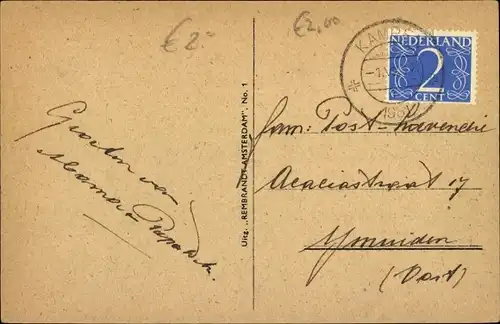 € 2.-
€2,00
KAMPEN
NEDERLAND
2
CENT
Groeten van
Mama
Uitg. „REMBRANDT-AMSTERDAM”, No. 1
Fam: Post-
Acaciastraat 17
IJmuiden
(Oost)